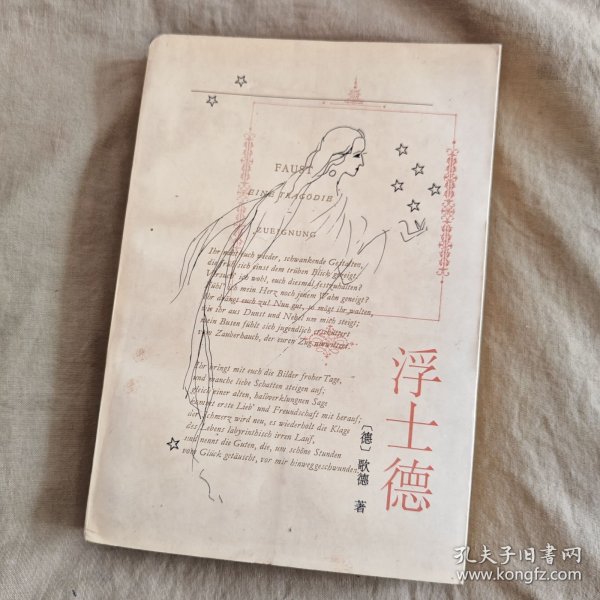 FAUST
EINE TRAGÖDIE
ZUEIGNUNG
Ihr naht euch wieder, schwankende Gestalten,
die früh sich einst dem trüben Blick gezeigt.
Versuch' ich wohl, euch diesmal festzuhalten?
Fühl' ich mein Herz noch jenem Wahn geneigt?
Ihr drängt euch zu! Nun gut, so mögt ihr walten,
wie ihr aus Dunst und Nebel um mich steigt;
mein Busen fühlt sich jugendlich erschüttert
vom Zauberhauch, der euren Zug umwittert.
Ihr bringt mit euch die Bilder froher Tage,
und manche liebe Schatten steigen auf;
gleich einer alten, halbverklungnen Sage
kommt erste Lieb' und Freundschaft mit herauf;
der Schmerz wird neu, es wiederholt die Klage
des Lebens labyrinthisch irren Lauf,
und nennt die Guten, die, um schöne Stunden
vom Glück getäuscht, vor mir hinweggeschwunden.
浮士德
〔德〕歌德 著
孔夫子旧书网
www.kongfz.com